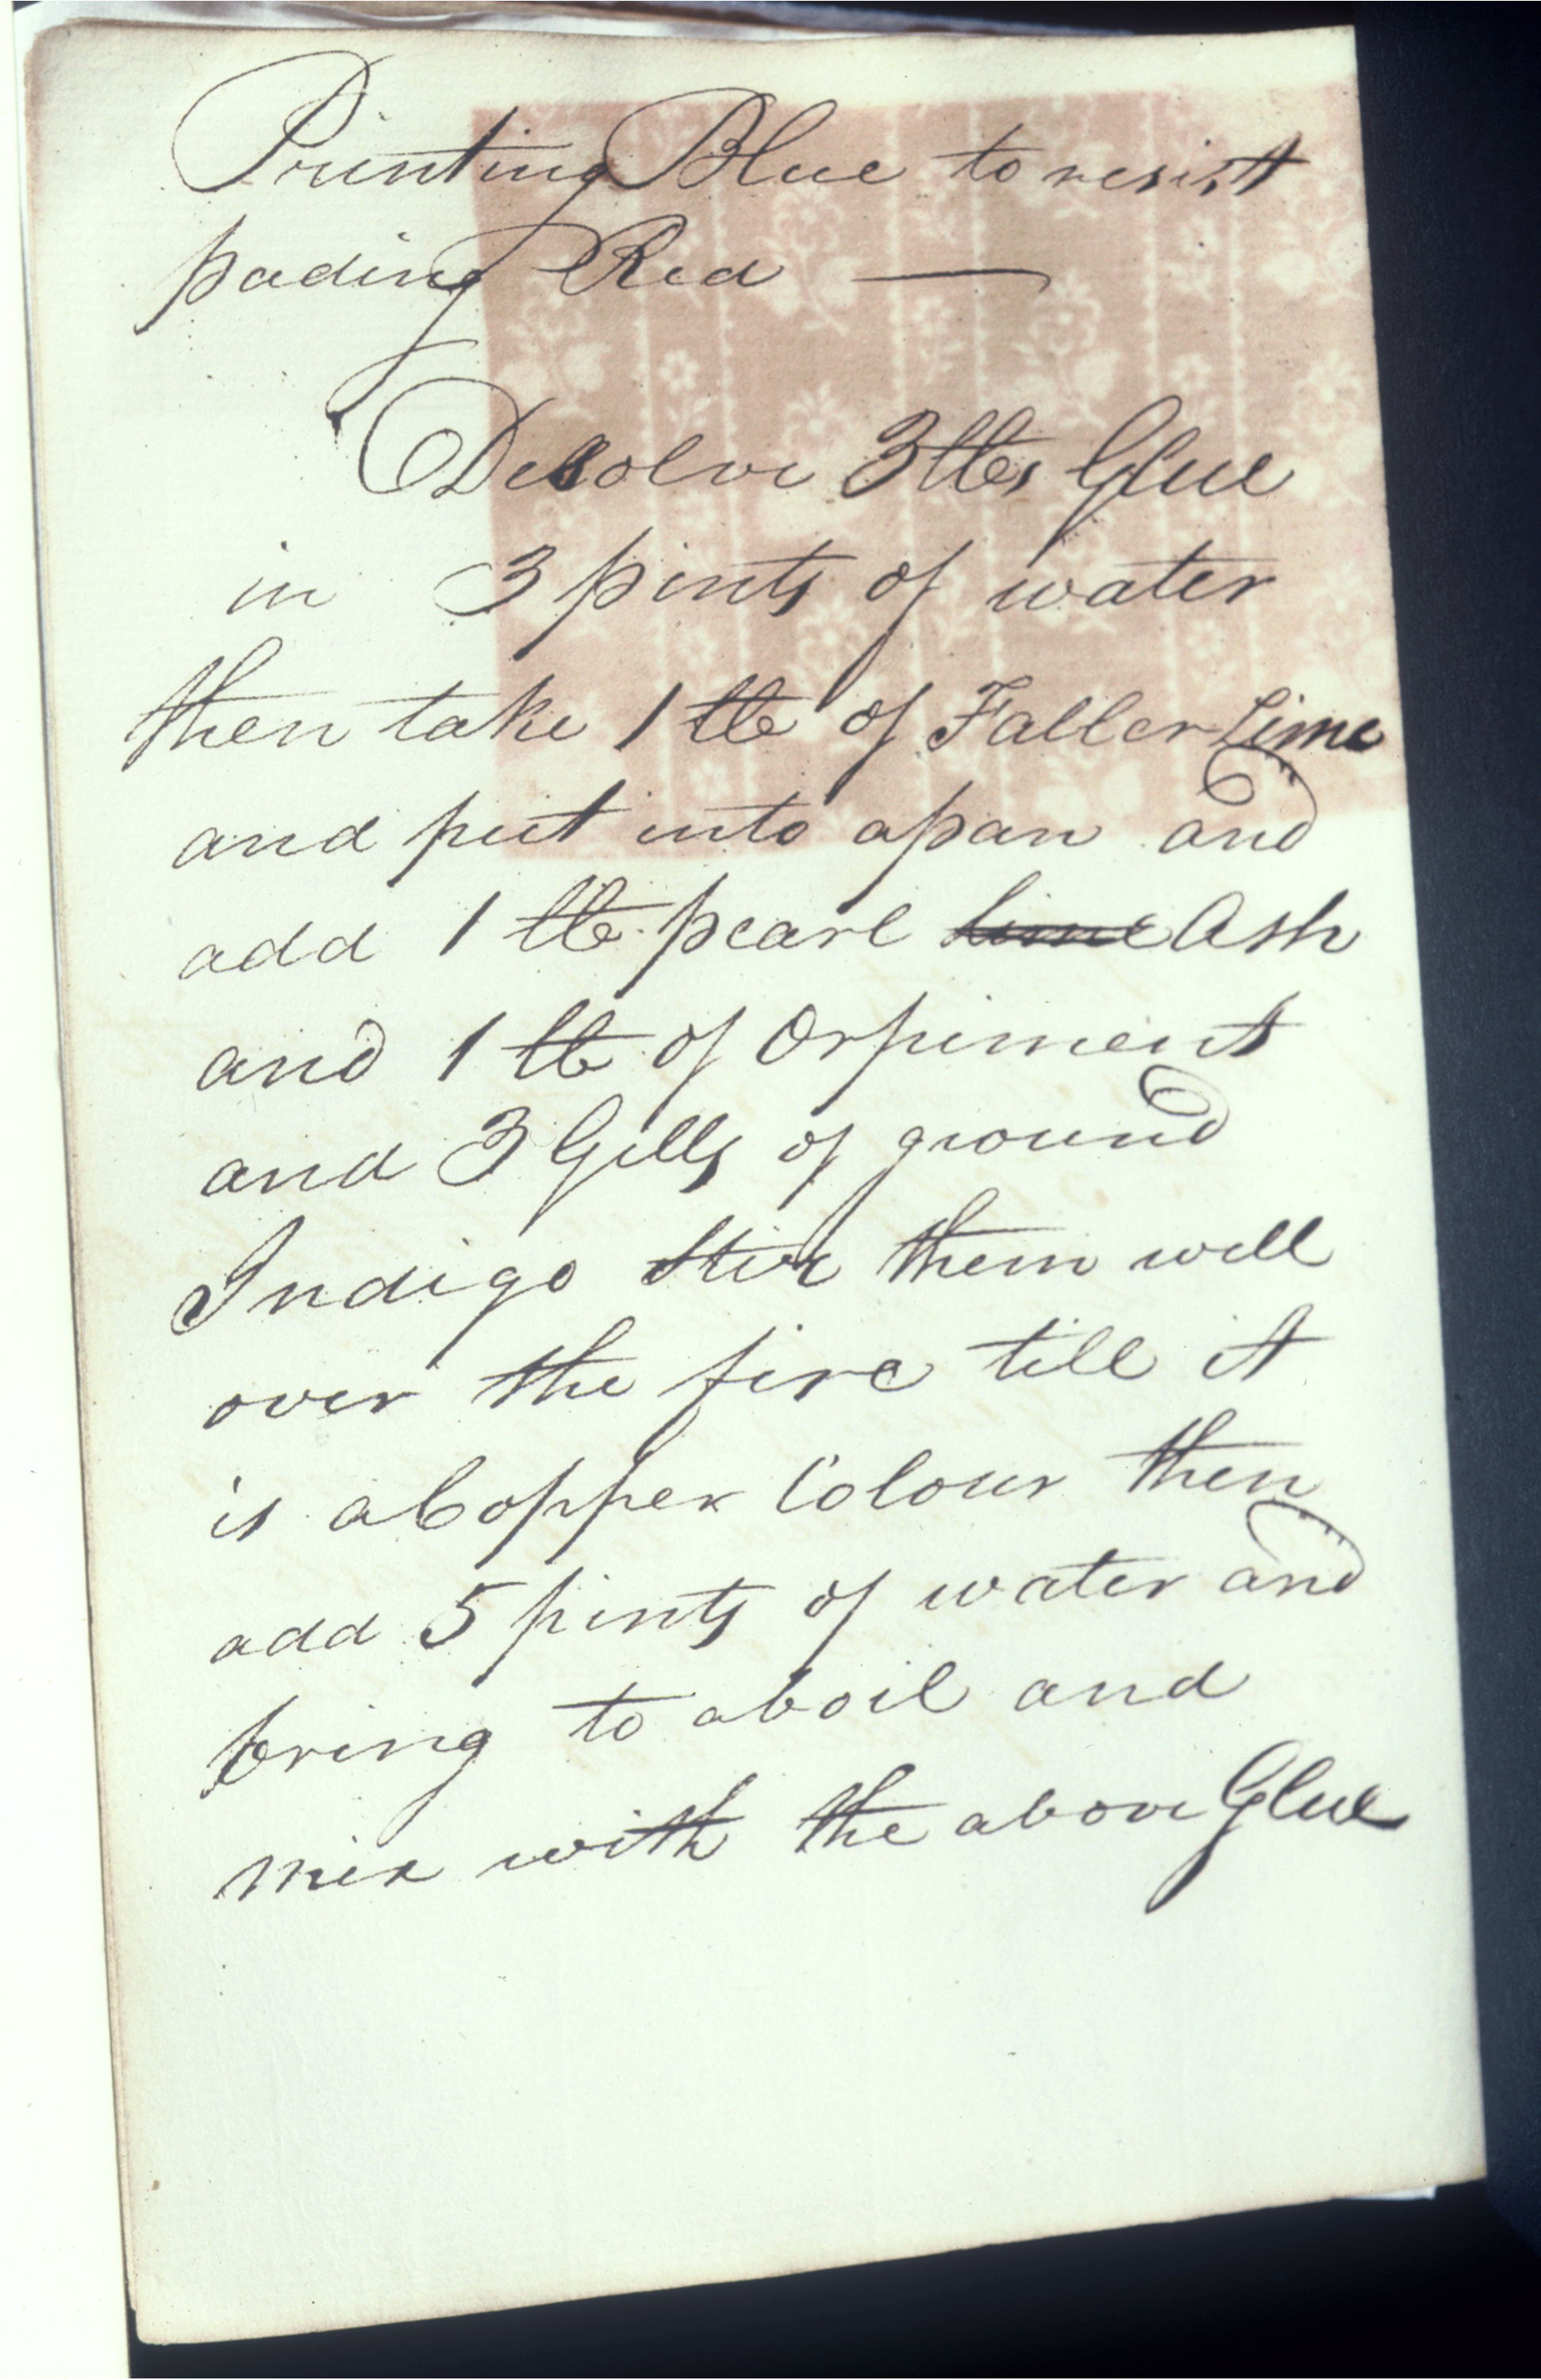 Printing Blue to resist
pading Red —
Desolve 3 lbs Glue
in 3 pints of water
then take 1 lb of Faller Lime
and put into a pan and
add 1 lb pearl lime Ash
and 1 lb of Orpiment
and 3 Gills of ground
Indigo Stir them well
over the fire till it
is a Copper Colour then
add 5 pints of water and
bring to a boil and
mix with the above Glue